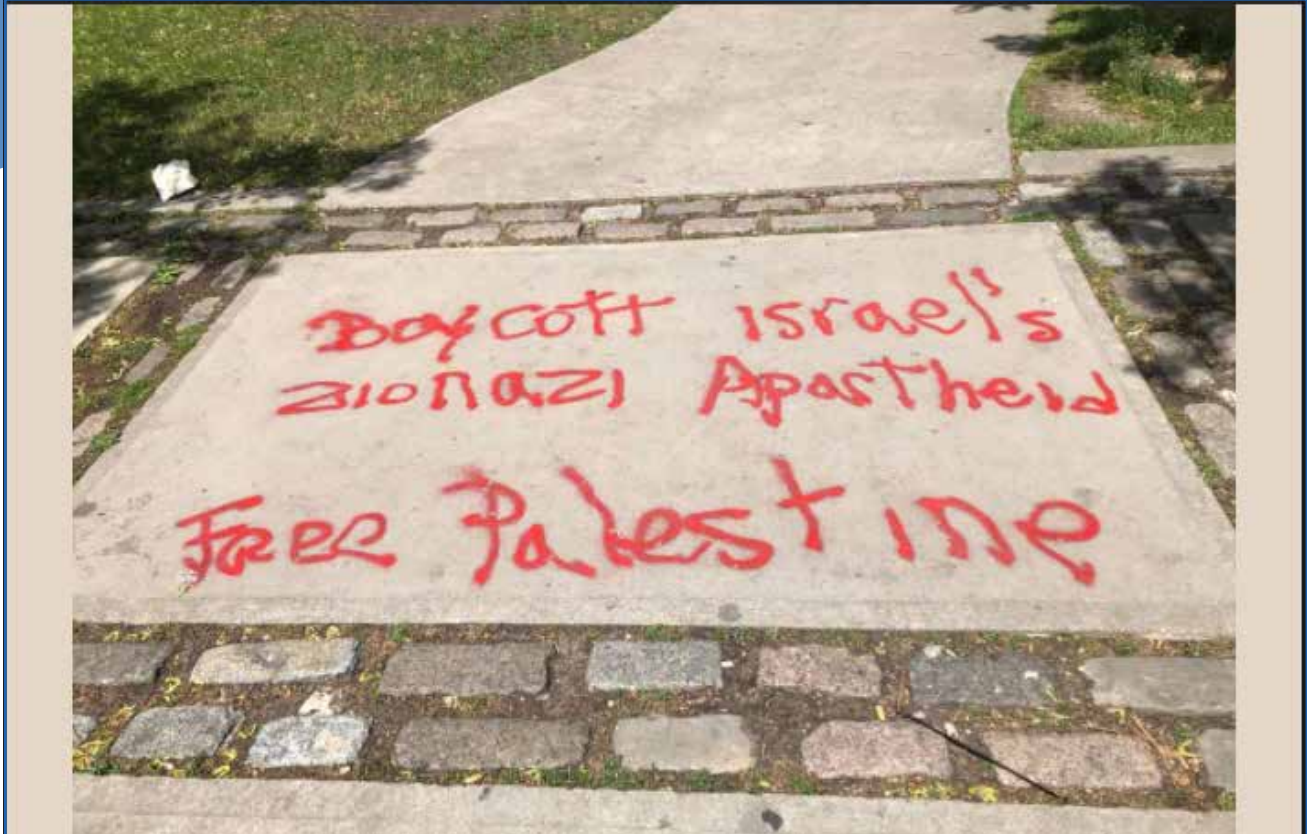 Boycott israel's
zionazi Apartheid
Free Palestine